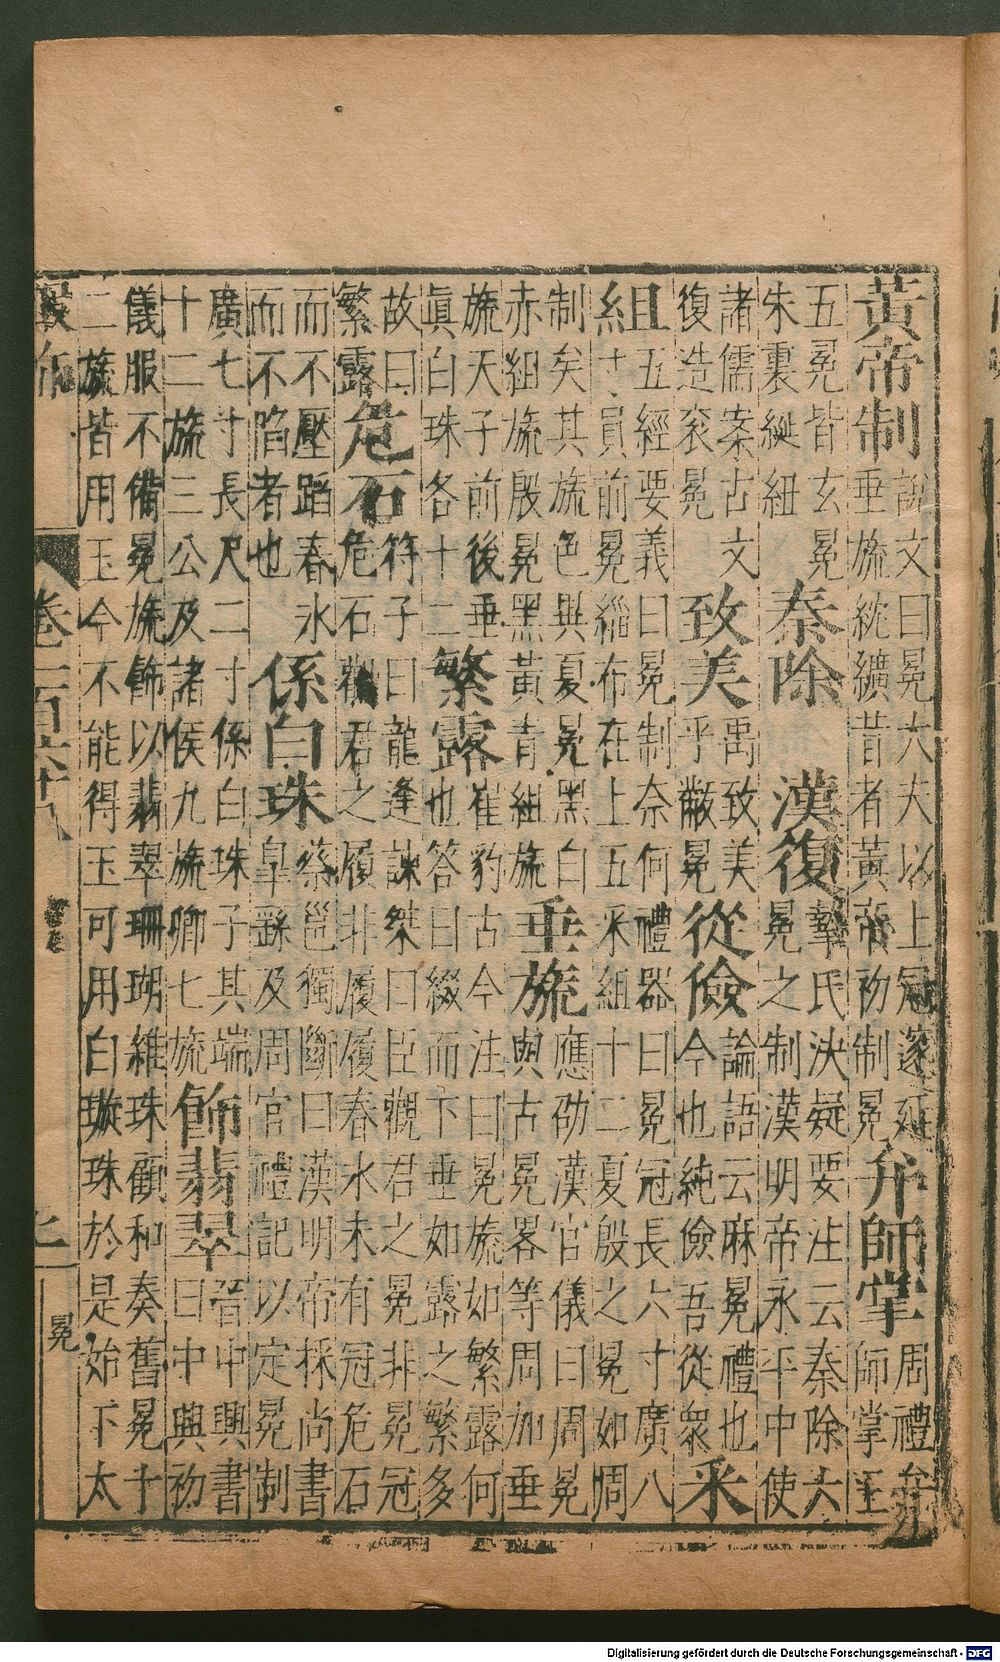 黃帝制
說文曰冕大夫以上冠邃延
垂旒紞纊昔者黃帝初制冕
弁師掌
周禮弁
師掌王
五冕皆玄冕
朱裏綖紐
秦除　漢復
摯氏決疑要注云秦除六
冕之制漢明帝永平中使
諸儒案古文
復造袞冕
致美
禹致美
乎黻冕
從儉
論語云麻冕禮也
今也純儉吾從衆
采
組
五經要義曰冕制奈何禮器曰冕冠長六寸廣八
寸員前冕緇布在上五采組十二夏殷之冕如周
制矣其旒色與夏冕黑白
赤組旒殷冕黑黃青組旒
垂旒
應劭漢官儀曰周冕
與古冕畧等周加垂
旒天子前後垂
眞白珠各十二
繁露
崔豹古今注曰冕旒如繁露何
也答曰綴而下垂如露之繁多
故曰
繁露
危石
符子曰龍逢諫桀曰臣觀君之冕非冕冠
危石觀君之履非履履春水未有冠危石
而不壓蹈春氷
而不陷者也
係白珠
蔡邕獨斷曰漢明帝採尚書
皐繇及周官禮記以定冕制
廣七寸長尺二寸係白珠子其端
十二旒三公及諸侯九旒卿七旒
飾翡翠
晉中興書
曰中興初
儀服不備冕旒飾以翡翠珊瑚維珠顧和奏舊冕十
二旒皆用玉今不能得玉可用白璇珠於是始下太
百六十八
冕
Digitalisierung gefördert durch die Deutsche Forschungsgemeinschaft - DFG